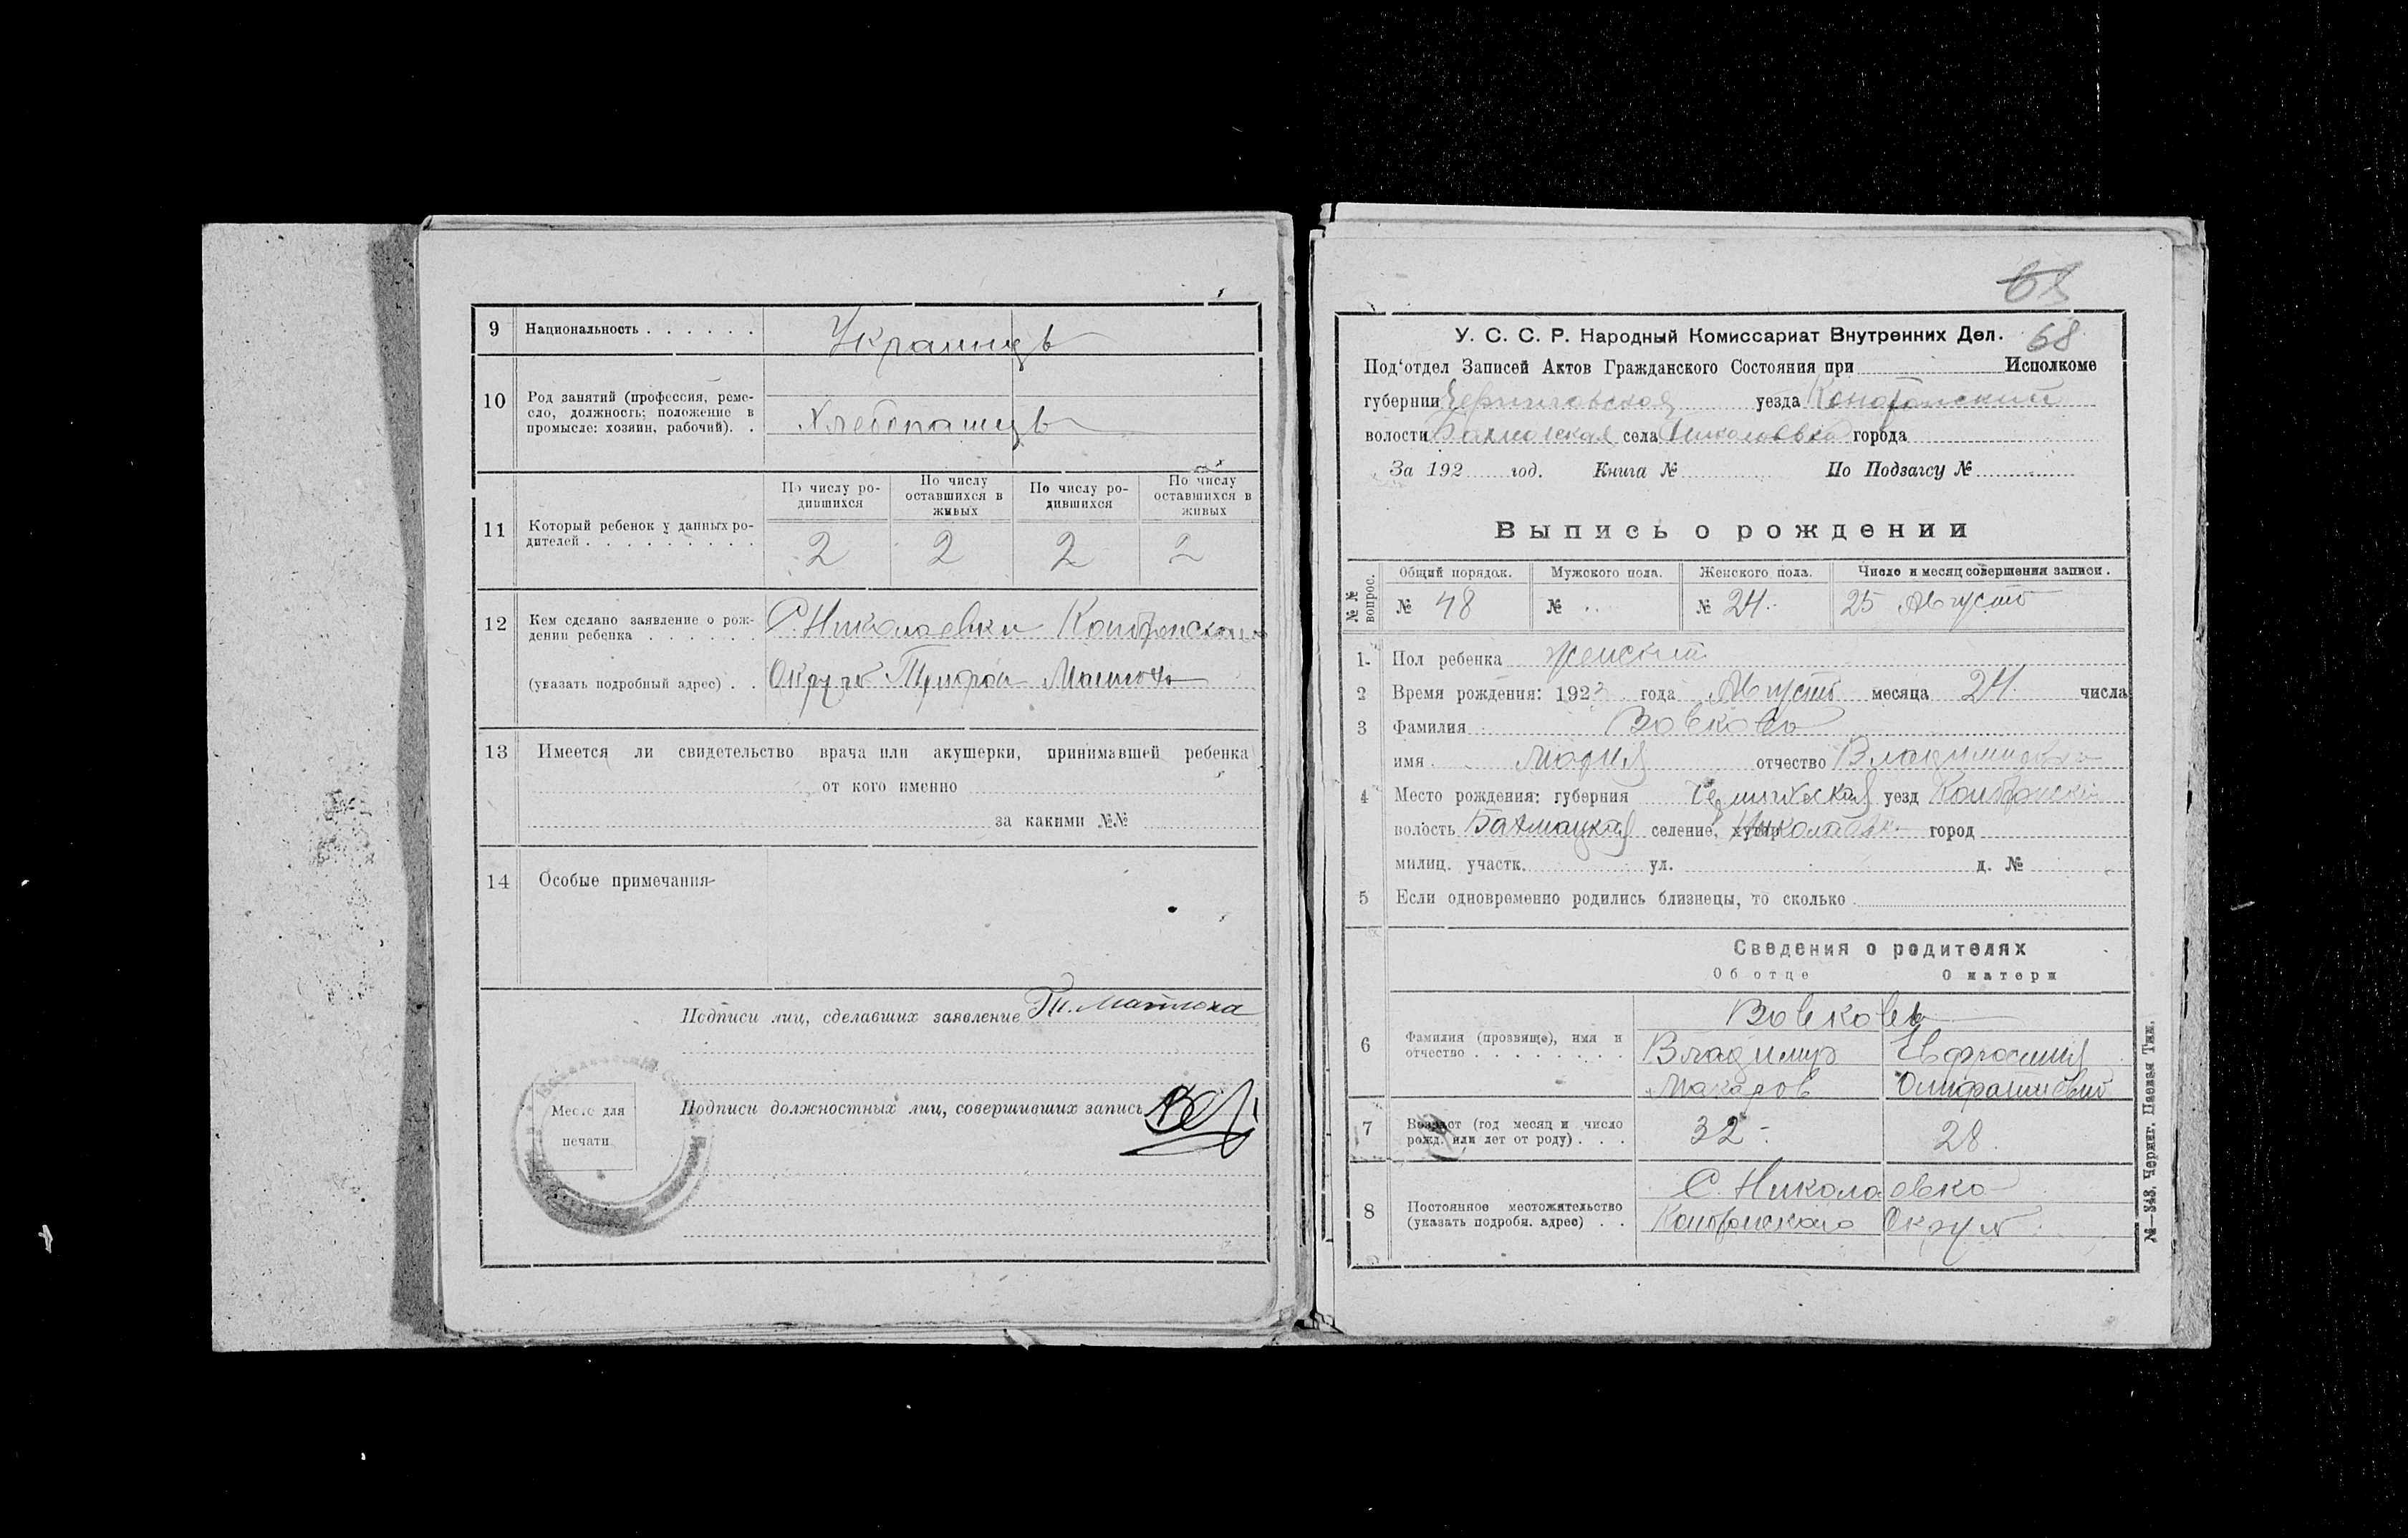 9 Национальность . . . . . . Украинцъ
10 Род занятий (профессия, реме-
сло, должность; положение в
промысле: хозяин, рабочий). . Хлебопашцъ
По числу ро-
дившихся
По числу
оставшихся в
живых
По числу ро-
дившихся
По числу
оставшихся в
живых
11 Который ребенок у данных ро-
дителей . . . . . . . . . 2 2 2 2
12 Кем сделано заявление о рож-
дении ребенка . . . . . . С. Николаевки
(указать подробный адрес) . . Округа
13 Имеется ли свидетельство врача или акушерки, принимавшей ребенка
от кого именно
за какими №№
14 Особые примечания
Подписи лиц, сделавших заявление
Место для
печати
Подписи должностных лиц, совершивших запись
68
У. С. С. Р. Народный Комиссариат Внутренних Дел. 68
Под'отдел Записей Актов Гражданского Состояния при Исполкоме
губернии Черниговская уезда Конотопский
волости села Николаевка города
За 192 год. Книга № По Подзагсу №
Выпись о рождении
№№ вопрос.
Общий порядок. Мужского пола. Женского пола. Число и месяц совершения записи.
№ 48 № .. № 24 25 Августа
1 Пол ребенка женский
2 Время рождения: 1923 года Августа месяца 24 числа
3 Фамилия Вовковъ
имя Мария отчество Владимировна
4 Место рождения: губерния Черниговская уезд Конотопский
волость Бахмацкая селение, хутор Николаевка город
милиц. участк. ул. д. №
5 Если одновременно родились близнецы, то сколько
Сведения о родителях
Об отце О матери
6 Фамилия (прозвище), имя и
отчество . . . . . . . . Вовковъ
Владимир Евфросиния
Макаров
7 Возраст (год месяц и число
рожд. или лет от роду) . . . 32 28
8 Постоянное местожительство
(указать подробн. адрес) . . С. Николаевка
Конотопского Округа
№—343. Черниг. Паевая Тип.